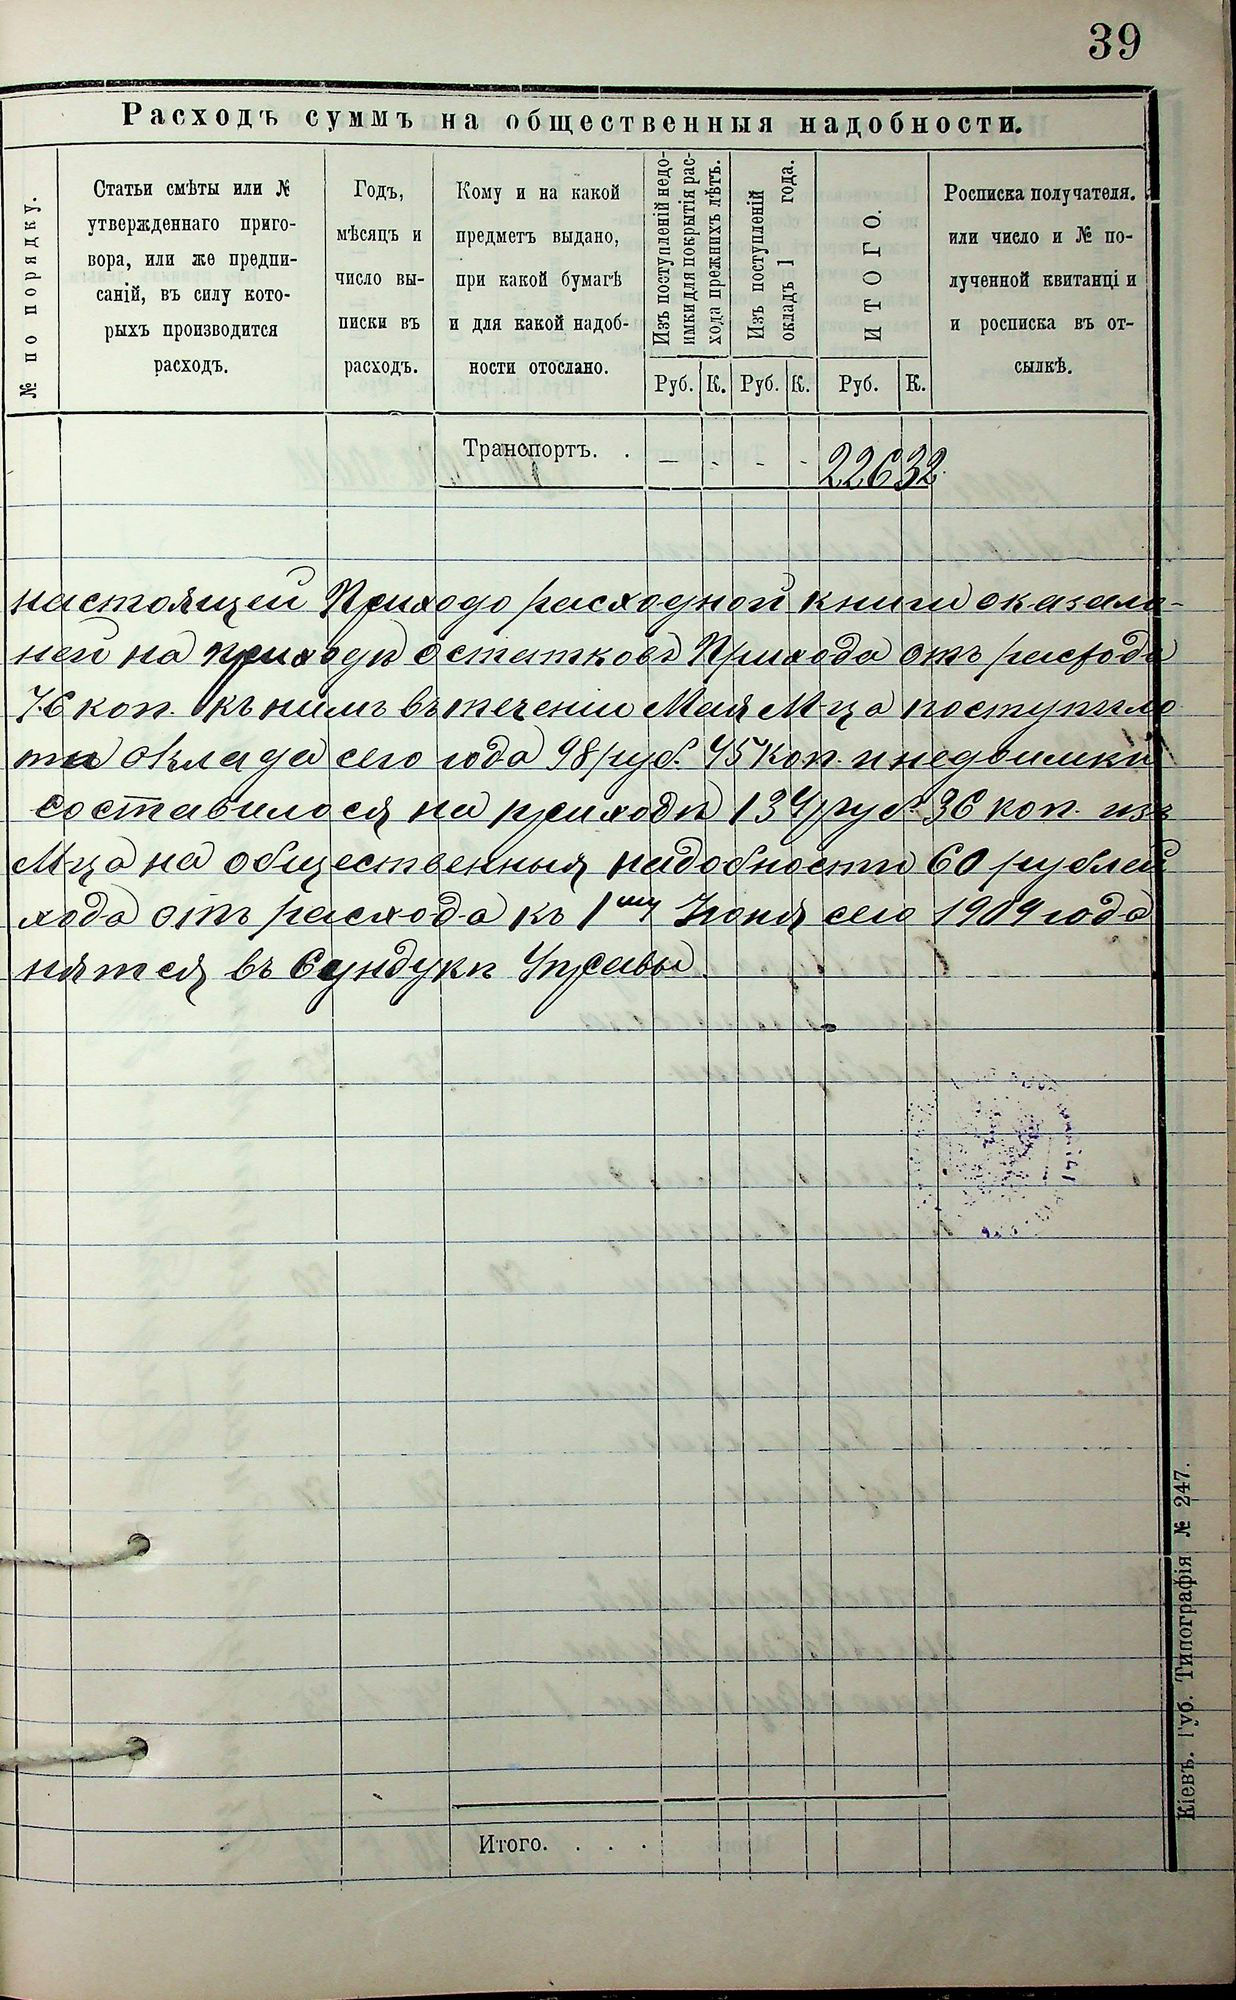 39
Расходъ суммъ на общественныя надобности.
№ по порядку.
Статьи смѣты или №
утвержденнаго приго-
вора, или же предпи-
саній, въ силу кото-
рыхъ производится
расходъ.
Годъ,
мѣсяцъ и
число вы-
писки въ
расходъ.
Кому и на какой
предметъ выдано,
при какой бумагѣ
и для какой надоб-
ности отослано.
Изъ поступленій недо-
имки для покрытія рас-
хода прежнихъ лѣтъ.
Изъ поступленій
окладъ 1 года.
ИТОГО.
Росписка получателя.
или число и № по-
лученной квитанціи
и росписка въ от-
сылкѣ.
Руб. К. Руб. К. Руб. К.
Транспортъ. . — - - - 226 32
настоящей Приходо расходной книги оказало-
ней на приходѣ остатковъ Прихода отъ расхода
76 коп. къ нимъ въ течении Мая М-ца поступило
та оклада сего года 98 руб. 45 коп. и недоимки
составилося на приходѣ 134 руб. 36 коп. изъ
М-ца на общественныя надобности 60 рублей
хода отъ расхода къ 1му Іюня сего 1909 года
нятся въ Сундукѣ Управы.
Итого. . . .
Кіевъ. Губ. Типографія № 247.